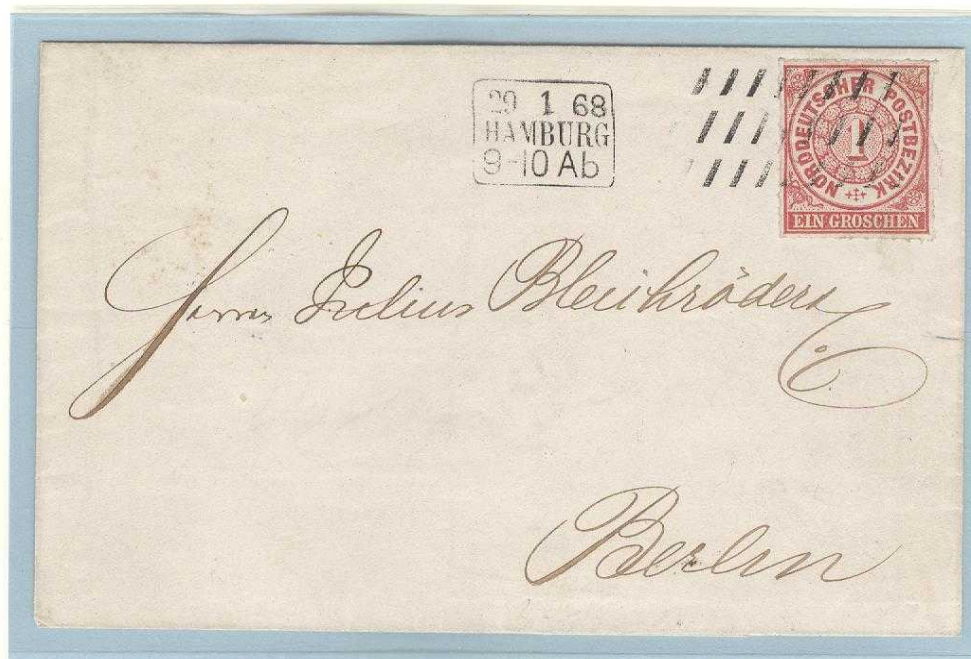 29 1 68
HAMBURG
9-10 Ab
NORDDEUTSCHER POSTBEZIRK
1
EIN GROSCHEN
Julius Bleichröder &
Co
Berlin